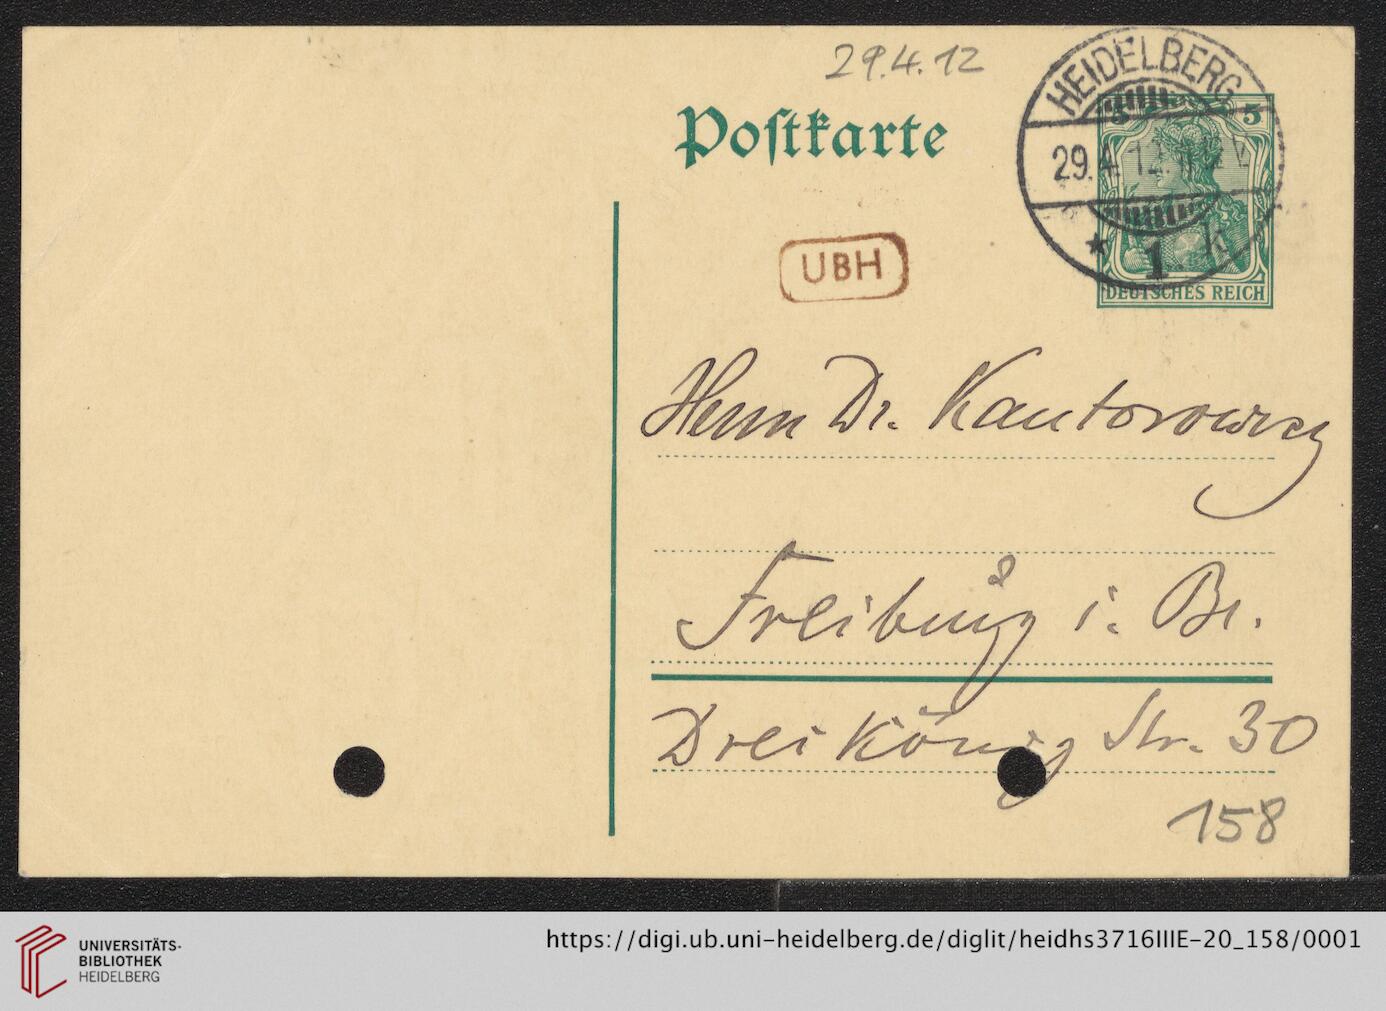 29.4.12
Postkarte
HEIDELBERG
29.4.12.
* 1 k
5 5
DEUTSCHES REICH
UBH
Herrn Dr. Kantorowicz
Freiburg i. Br.
Dreikönig Str. 30
158
UNIVERSITÄTS-
BIBLIOTHEK
HEIDELBERG
https://digi.ub.uni-heidelberg.de/diglit/heidhs3716IIIE-20_158/0001